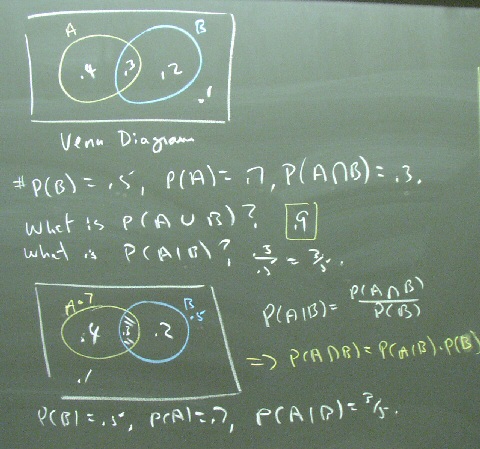 A B
.4 .3 .2
.1
Venn Diagram
# P(B) = .5, P(A) = .7, P(A∩B) = .3.
What is P(A ∪ B)? .9
What is P(A|B)? .3/.5 = 3/5.
A .7 B .5
.4 .3 .2
.1
P(A|B) = P(A∩B)/P(B)
=> P(A∩B) = P(A|B) · P(B)
P(B) = .5, P(A) = .7, P(A|B) = 3/5.